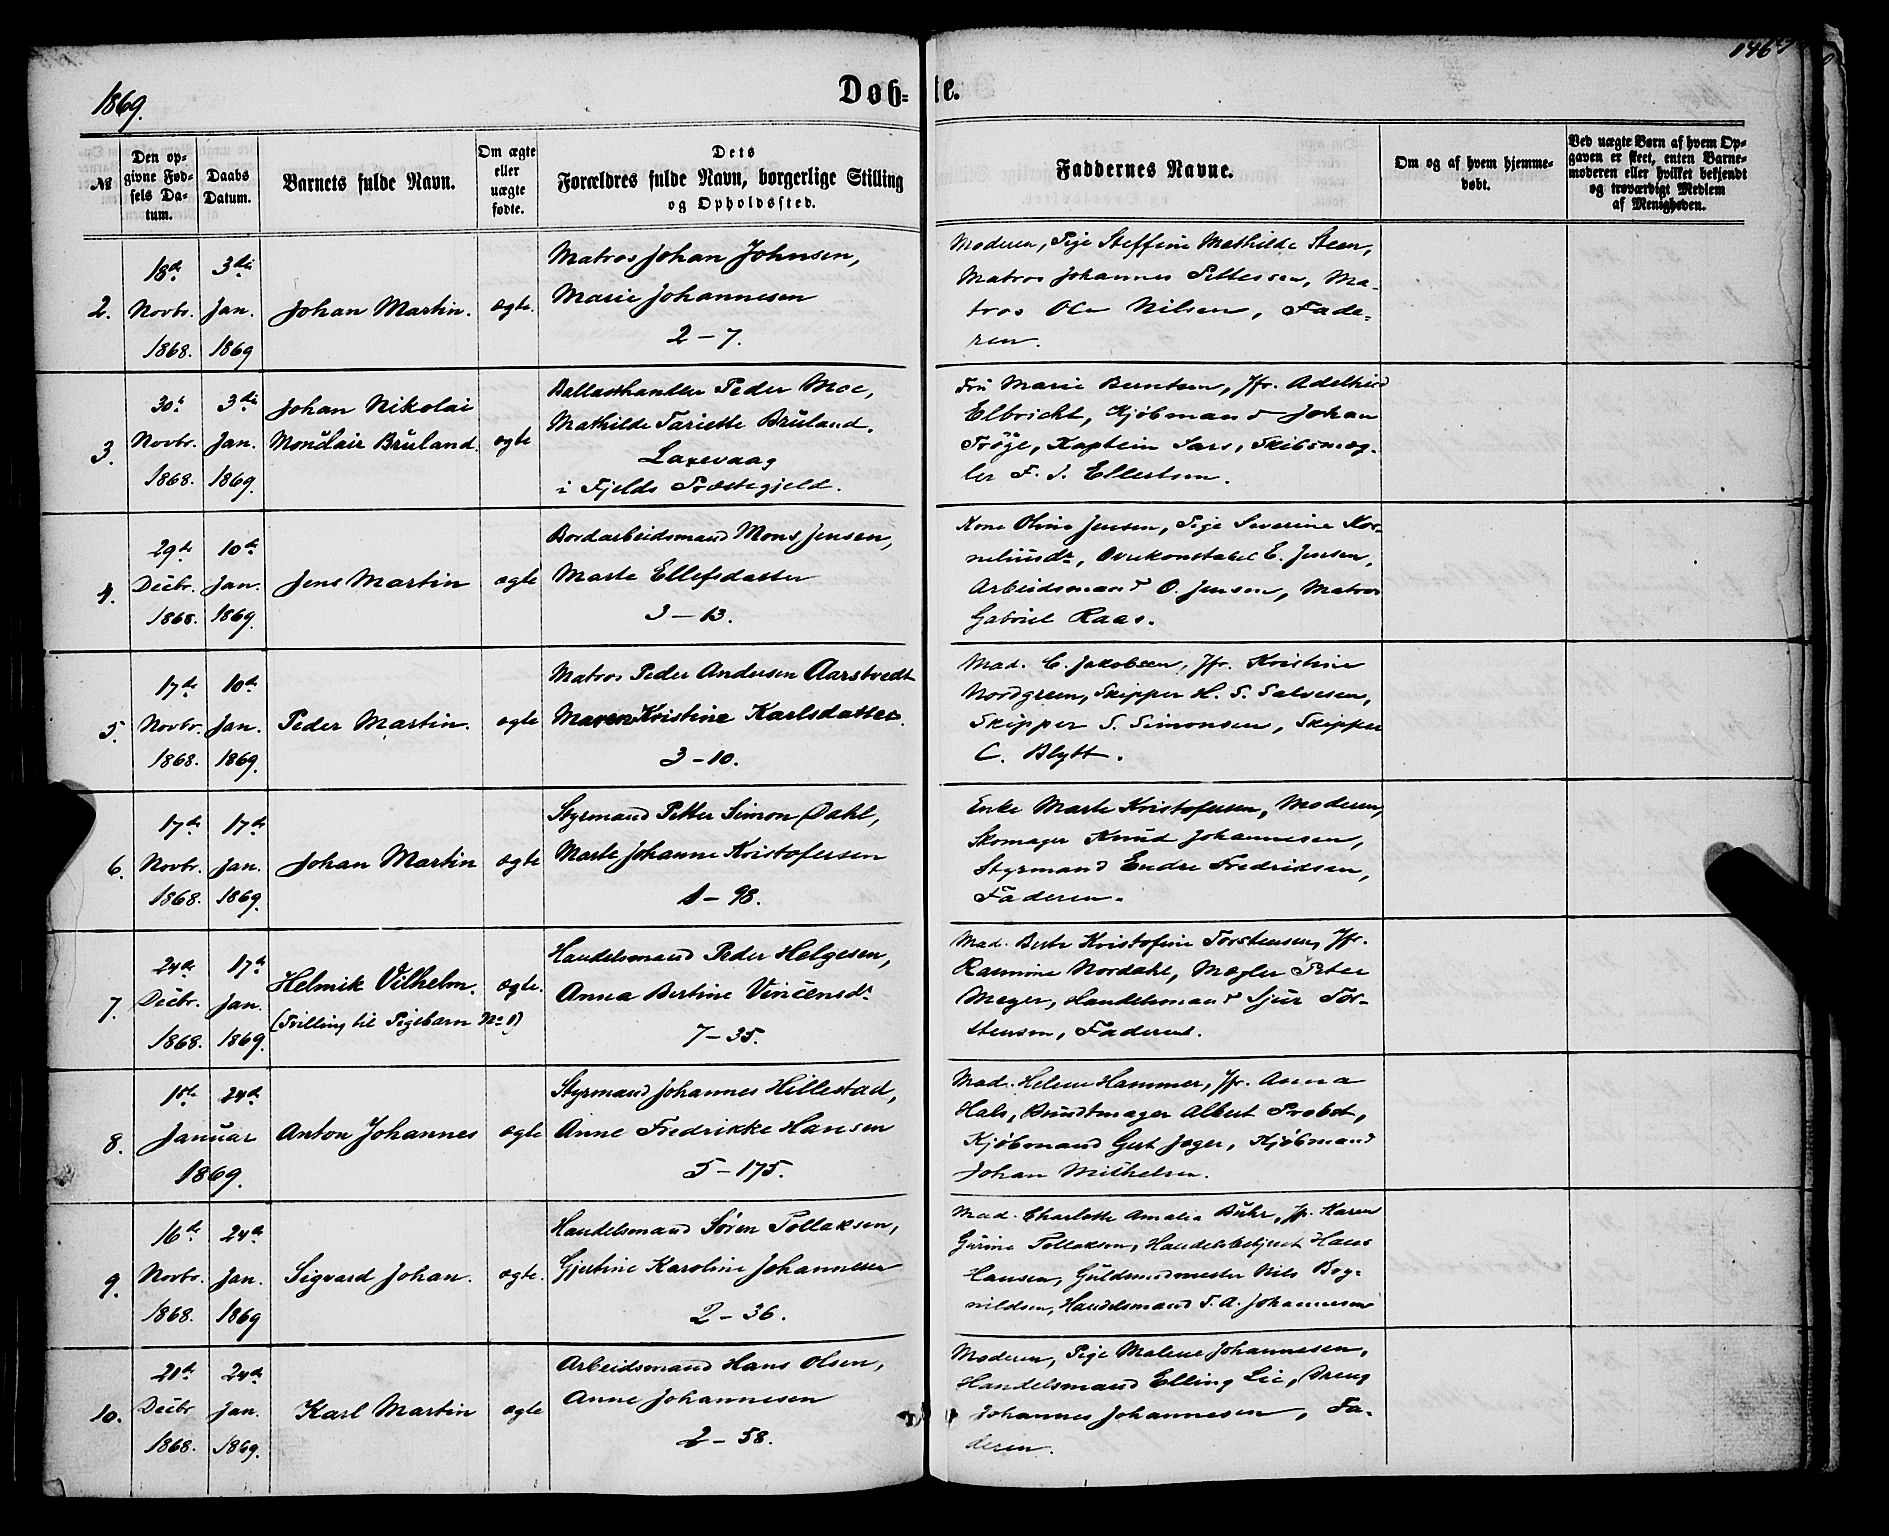 146
1869.
Døb-te.
No
Den op-
givne Fød-
sels Da-
tum.
Daabs
Datum.
Barnets fulde Navn.
Om ægte
eller
uægte
fødte.
Dets
Forældres fulde Navn, borgerlige Stilling
og Opholdssted.
Faddernes Navne.
Om og af hvem hjemme-
døbt.
Ved uægte Børn af hvem Op-
gaven er skeet, enten Barne-
moderen eller hvilket bekjendt
og troværdigt Medlem
af Menigheden.
2.
18de
Novbr.
1868.
3die
Jan.
1869
Johan Martin.
ægte.
Matros Johan Johnsen,
Marie Johannesen
2 – 7.
Moderen, Pige Steffine Mathilde Steen,
Matros Johannes Pettersen, Ma-
tros Ole Nilsen, Fade-
ren.
3.
30te
Novbr.
1868.
3die
Jan.
1869.
Johan Nikolai
Monclair Brüland.
ægte
Ballasthandler Peder Moe,
Mathilde Tariette Brüland.
Laxevaag
i Fjelds Præstegjeld.
Fru Marie Berntsen, Jfr. Adelheid
Elbricht, Kjøbmand Johan
Trøge, Kaptein Sars, Skibsmæg-
ler F. I. Ellertsen.
4.
29de
Decbr.
1868.
10de
Jan.
1869.
Jens Martin
ægte
Bordarbeidsmand Mons Jensen,
Marta Ellefsdatter
3 – 13.
Kone Oline Jensen, Pige Severine Kor-
neliusdr, Overkonstabel E. Jensen,
Arbeidsmand O. Jensen, Matros
Gabriel Raas.
5.
17de
Novbr.
1868.
10de
Jan.
1869.
Peder Martin.
ægte
Matros Peder Andersen Aarstvedt
Maren Kristine Karlsdatter.
3 – 10.
Mad. C. Jakobsen, Jfr. Kristine
Nordgreen, Skipper H. S. Salvesen,
Skipper S. Simonsen, Skipper
C. Blytt.
6.
17de
Novbr.
1868.
17de
Jan.
1869.
Johan Martin
ægte
Styrmand Petter Simon Dahl,
Marte Johanne Kristofersen
1 – 98.
Enke Marte Kristofersen, Moderen,
Skomager Knud Johannesen,
Styrmand Endre Fredriksen,
Faderen.
7.
24de
Decbr.
1868.
17de
Jan.
1869.
Helmik Vilhelm.
(Tvilling til Pigebarn No 1)
ægte.
Handelsmand Peder Helgesen,
Anna Bertine Vincensdr
7 – 35.
Mad. Berte Kristofine Torstensen, Jfr.
Rasmine Nordahl, Mægler Peter
Meyer, Handelsmand Sjur Tor-
stensen, Faderen.
8.
1ste
Januar
1869.
24de
Anton Johannes
ægte
Styrmand Johannes Hillestad,
Anne Fredrikke Hansen
5 – 175.
Mad. Helene Hammer, Jfr. Anna
Hals, Bundtmager Albert Probst,
Kjøbmand Gert Jæger, Kjøbmand
Johan Mithelsen.
9.
16de
Novbr.
1868.
24de
Jan.
1869
Sigvard Johan.
ægte.
Handelsmand Søren Tollaksen,
Gjertine Karoline Johannesen
2 – 36.
Mad. Charlotte Amalia Buhr, Jfr. Karen
Gurine Tollaksen, Handelsbetjent Hans
Hansen, Guldsmedmester Nils Bog-
nildsen, Handelsmand T. A. Johannesen
10.
21de
Decbr
1868.
24de
Jan.
1869.
Karl Martin
ægte
Arbeidsmand Hans Olsen,
Anne Johannesen
2 – 58.
Moderen, Pige Malene Johannesen,
Handelsmand Elling Lie, Dreng
Johannes Johannesen, Fa-
deren.